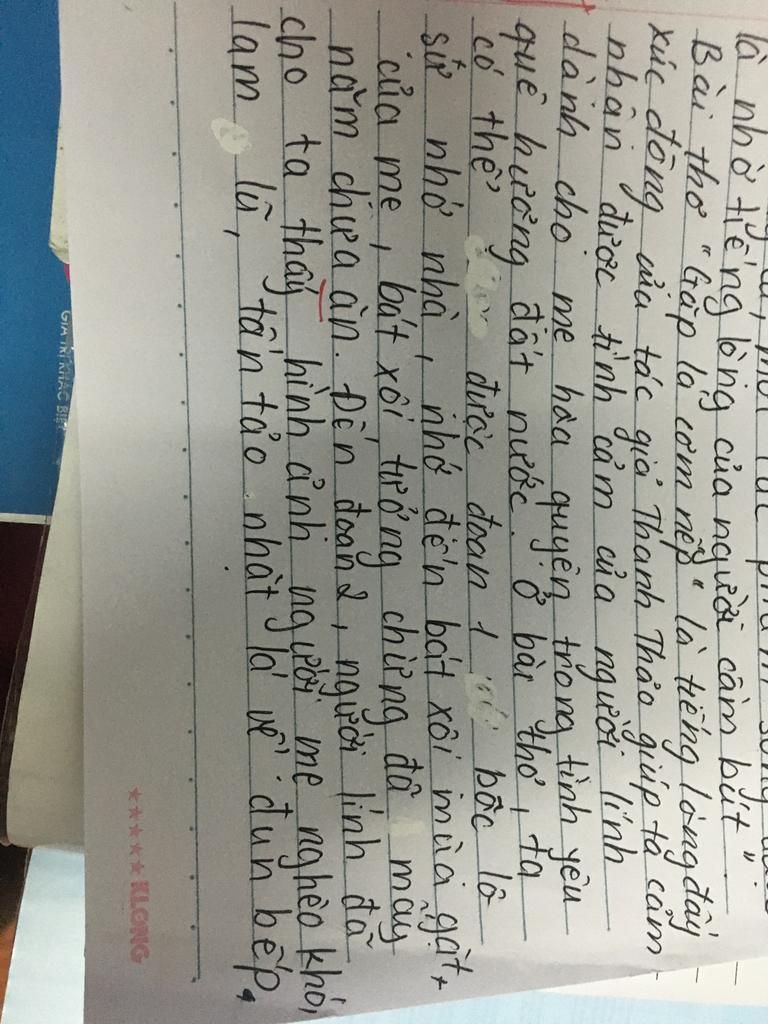 là nhờ tiếng lòng của người cầm bút".
Bài thơ "Gặp lá cơm nếp" là tiếng lòng đầy
xúc động của tác giả Thanh Thảo giúp ta cảm
nhận được tình cảm của người lính
dành cho mẹ hòa quyện trong tình yêu
quê hương đất nước. Ở bài thơ, ta
có thể được đoạn 1 bộc lộ
sử nhớ nhà, nhớ đến bát xôi mùa gặt,
của mẹ, bát xôi tưởng chừng đã mấy
năm chưa ăn. Đến đoạn 2, người lính đã
cho ta thấy hình ảnh người mẹ nghèo khó,
lam lũ, tần tảo nhặt lá về đun bếp,
GIÁ TRỊ KHÁC BIỆT
★★★★★ KLONG